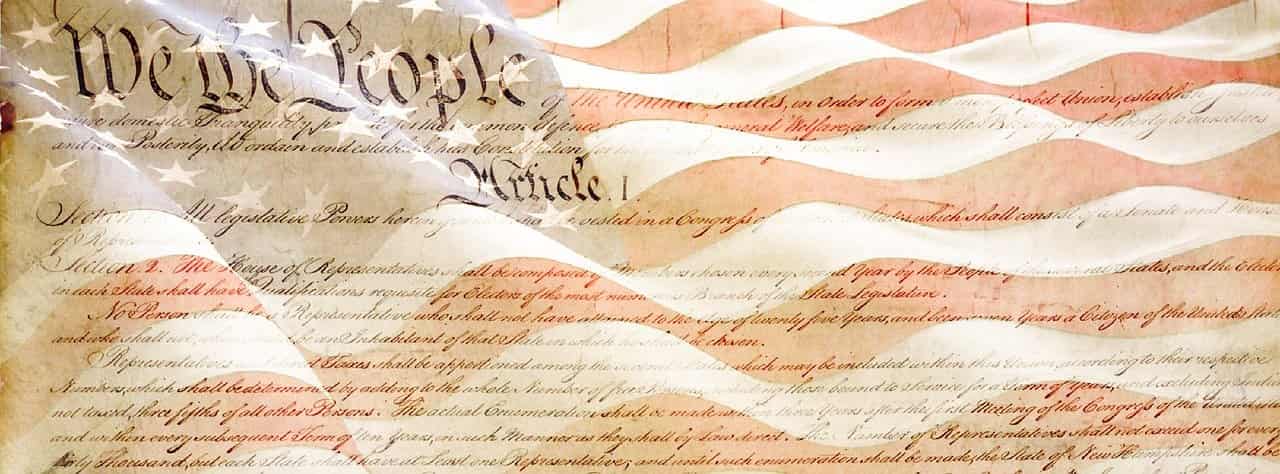 We the People of the United States, in Order to form a more perfect Union, establish Justice
domestic Tranquility, common defence, general Welfare, and secure the Blessings of Liberty to ourselves
and our Posterity, do ordain and establish this Constitution for
Article. I.
Section All legislative Powers herein vested in a Congress of States, which shall consist of a Senate and House
of Repre
Section. 2. The House of Representatives shall be composed of Members chosen every second Year by the People of the several States, and the Electo
in each State shall have Qualifications requisite for Electors of the most numerous Branch of the State Legislature.
No Person shall be a Representative who shall not have attained to the Age of twenty five Years, and been seven Years a Citizen of the United
and who shall not, when be an Inhabitant of that State in which he shall be chosen.
Representatives and direct Taxes shall be apportioned among the several States which may be included within this Union, according to their respective
Numbers, which shall be determined by adding to the whole Number of free Persons, including those bound to Service for a Term of Years, and excluding Indians
not taxed, three fifths of all other Persons. The actual Enumeration shall be made within three Years after the first Meeting of the Congress of the United
and within every subsequent Term of ten Years, in such Manner as they shall by Law direct. The Number of Representatives shall not exceed one for every
thirty Thousand, but each State shall have at Least one Representative; and until such enumeration shall be made, the State of New Hampshire shall be